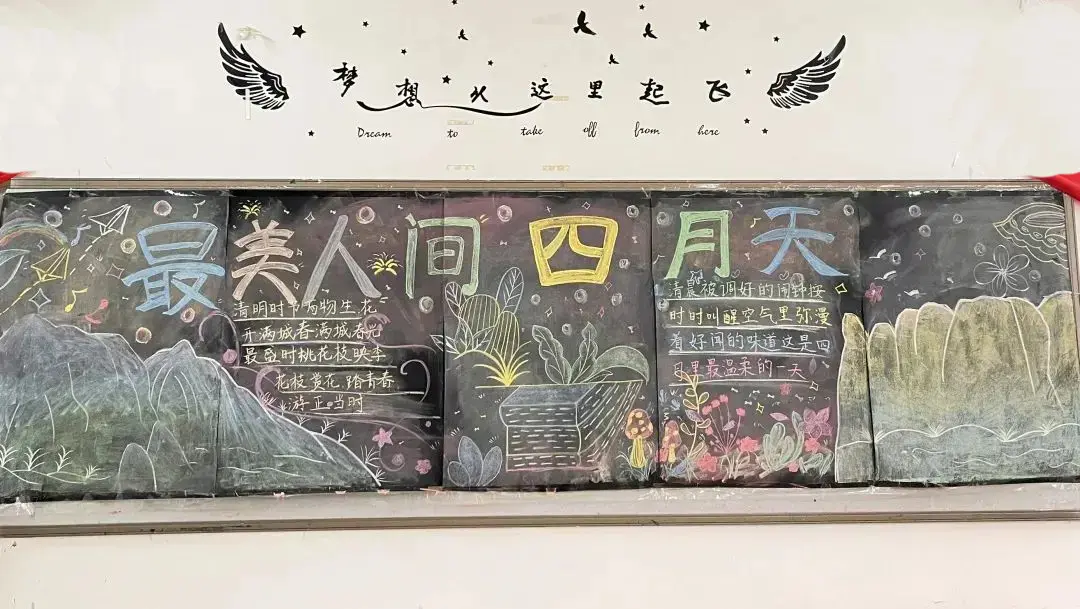 梦想从这里起飞
Dream to take off from here
最美人间四月天
清明时节万物生花
开满城春满城春光
最盛时桃花枝映李
花枝赏花踏青春
游正当时
清晨被调好的闹钟按
时时叫醒空气里弥漫
着好闻的味道这是四
月里最温柔的一天